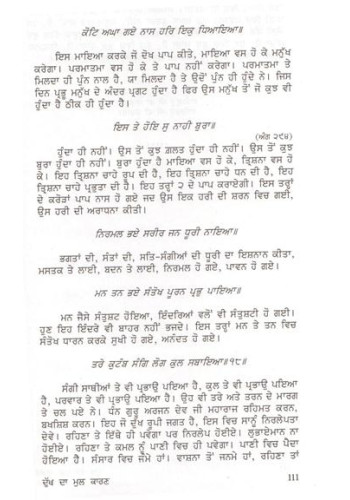 ਕੋਟਿ ਅਘਾ ਗਏ ਨਾਸ ਹਰਿ ਇਕੁ ਧਿਆਇਆ॥
ਇਸ ਮਾਇਆ ਕਰਕੇ ਜੋ ਦੋਖ ਪਾਪ ਕੀਤੇ, ਮਾਇਆ ਵਸ ਹੋ ਕੇ ਮਨੁੱਖ
ਕਰੇਗਾ। ਪਰਮਾਤਮਾ ਵਸ ਹੋ ਕੇ ਤੇ ਪਾਪ ਨਹੀਂ ਕਰੇਗਾ। ਪਰਮਾਤਮਾ ਤੇ
ਮਿਲਦਾ ਹੀ ਪੁੰਨ ਨਾਲ ਹੈ, ਯਾ ਮਿਲਦਾ ਹੈ ਤੇ ਉਦੋਂ ਪੁੰਨ ਹੀ ਹੁੰਦੇ ਨੇ। ਜਿਸ
ਦਿਨ ਪ੍ਰਭੂ ਮਨੁੱਖ ਦੇ ਅੰਦਰ ਪ੍ਰਗਟ ਹੁੰਦਾ ਹੈ ਫਿਰ ਉਸ ਮਨੁੱਖ ਤੋਂ ਜੋ ਕੁਝ ਵੀ
ਹੁੰਦਾ ਹੈ ਠੀਕ ਹੀ ਹੁੰਦਾ ਹੈ।
ਇਸ ਤੇ ਹੋਇ ਸੁ ਨਾਹੀ ਬੁਰਾ॥
(ਅੰਗ ੨੯੪)
ਹੁੰਦਾ ਹੀ ਨਹੀਂ। ਉਸ ਤੋਂ ਕੁਝ ਗ਼ਲਤ ਹੁੰਦਾ ਹੀ ਨਹੀਂ। ਉਸ ਤੋਂ ਕੁਝ
ਬੁਰਾ ਹੁੰਦਾ ਹੀ ਨਹੀਂ। ਬੁਰਾ ਹੁੰਦਾ ਹੈ ਮਾਇਆ ਵਸ ਹੋ ਕੇ, ਤ੍ਰਿਸ਼ਨਾ ਵਸ ਹੋ
ਕੇ। ਇਹ ਤ੍ਰਿਸ਼ਨਾ ਚਾਹੇ ਰੂਪ ਦੀ ਹੈ, ਇਹ ਤ੍ਰਿਸ਼ਨਾ ਚਾਹੇ ਧਨ ਦੀ ਹੈ, ਇਹ
ਤ੍ਰਿਸ਼ਨਾ ਚਾਹੇ ਪ੍ਰਭੁਤਾ ਦੀ ਹੈ। ਇਹ ਤਰ੍ਹਾਂ ੨ ਦੇ ਪਾਪ ਕਰਾਏਗੀ। ਇਸ ਤਰ੍ਹਾਂ
ਦੇ ਕਰੋੜਾਂ ਪਾਪ ਨਾਸ ਹੋ ਗਏ ਜਦ ਉਸ ਇਕ ਹਰੀ ਦੀ ਸ਼ਰਨ ਵਿਚ ਗਈ,
ਉਸ ਹਰੀ ਦੀ ਅਰਾਧਨਾ ਕੀਤੀ।
ਨਿਰਮਲ ਭਏ ਸਰੀਰ ਜਨ ਧੂਰੀ ਨਾਇਆ॥
ਭਗਤਾਂ ਦੀ, ਸੰਤਾਂ ਦੀ, ਸਤਿ-ਸੰਗੀਆਂ ਦੀ ਧੂਰੀ ਦਾ ਇਸ਼ਨਾਨ ਕੀਤਾ,
ਮਸਤਕ ਤੇ ਲਾਈ, ਬਦਨ ਤੇ ਲਾਈ, ਨਿਰਮਲ ਹੋ ਗਏ, ਪਾਵਨ ਹੋ ਗਏ।
ਮਨ ਤਨ ਭਏ ਸੰਤੋਖ ਪੂਰਨ ਪ੍ਰਭੁ ਪਾਇਆ॥
ਮਨ ਜੈਸੇ ਸੰਤੁਸ਼ਟ ਹੋਇਆ, ਇੰਦਰਿਆਂ ਵਲੋਂ ਵੀ ਸੰਤੁਸ਼ਟੀ ਹੋ ਗਈ।
ਹੁਣ ਇਹ ਇੰਦਰੇ ਵੀ ਬਾਹਰ ਨਹੀਂ ਭਜਦੇ। ਇਸ ਤਰ੍ਹਾਂ ਮਨ ਤੇ ਤਨ ਵਿਚ
ਸੰਤੋਖ ਧਾਰਨ ਕਰਕੇ ਸੁਖੀ ਹੋ ਗਏ, ਅਨੰਦਤ ਹੋ ਗਏ।
ਤਰੇ ਕੁਟੰਬ ਸੰਗਿ ਲੋਗ ਕੁਲ ਸਬਾਇਆ॥੧੮॥
ਸੰਗੀ ਸਾਥੀਆਂ ਤੇ ਵੀ ਪ੍ਰਭਾਉ ਪਾਇਆ ਹੈ, ਕੁਲ ਤੇ ਵੀ ਪ੍ਰਭਾਉ ਪਾਇਆ
ਹੈ, ਪਰਵਾਰ ਤੇ ਵੀ ਪ੍ਰਭਾਉ ਪਾਇਆ ਹੈ। ਉਹ ਵੀ ਤਰੇ ਅਤੇ ਤਰਨ ਦੇ ਮਾਰਗ
ਤੇ ਚਲ ਪਏ ਨੇ। ਧੰਨ ਗੁਰੂ ਅਰਜਨ ਦੇਵ ਜੀ ਮਹਾਰਾਜ ਰਹਿਮਤ ਕਰਨ,
ਬਖਸ਼ਿਸ਼ ਕਰਨ। ਇਹ ਜੋ ਦੁੱਖ ਰੂਪੀ ਜਗਤ ਹੈ, ਇਸ ਵਿਚ ਸਾਨੂੰ ਨਿਰਲੇਪਤਾ
ਦੇਵੇ। ਰਹਿਣਾ ਤੇ ਇੱਥੇ ਹੀ ਪਵੇਗਾ ਪਰ ਨਿਰਲੇਪ ਹੋਈਏ। ਲੁਭਾਏਮਾਨ ਨਾ
ਹੋਈਏ। ਰਹਿਣਾ ਤੇ ਕਮਲ ਨੂੰ ਪਾਣੀ ਵਿਚ ਹੀ ਪਵੇਗਾ। ਪਾਣੀ ਵਿਚ ਪੈਦਾ
ਹੋਇਆ ਹੈ। ਸੰਸਾਰ ਵਿਚ ਜੰਮੇ ਹਾਂ। ਵਾਸ਼ਨਾ ਤੋਂ ਜਨਮੇ ਹਾਂ, ਰਹਿਣਾ ਤਾਂ
ਦੁੱਖ ਦਾ ਮੂਲ ਕਾਰਣ 111